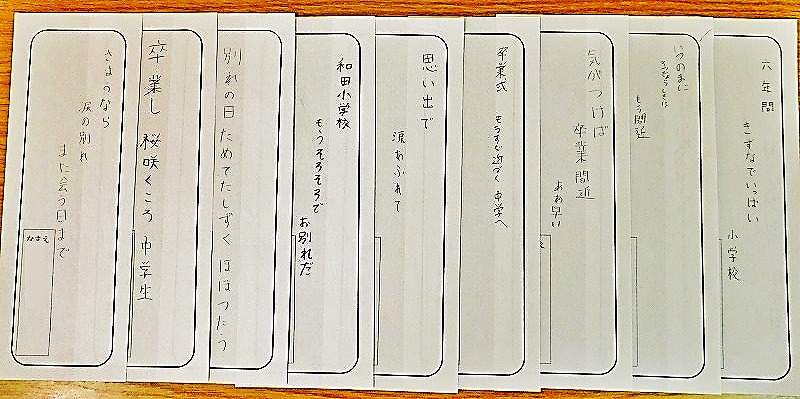 六年間
きずなでいっぱい
小学校
いつのまに
もう間近
気がつけば
卒業間近
ああ早い
卒業式 もうすぐ近づく 中学へ
思い出で
涙あふれて
和田小学校
もうそろそろで
お別れだ
別れの日 ためてたしずく ほほつたう
卒業し 桜咲くころ 中学生
さようなら
涙の別れ
また会う日まで
なまえ